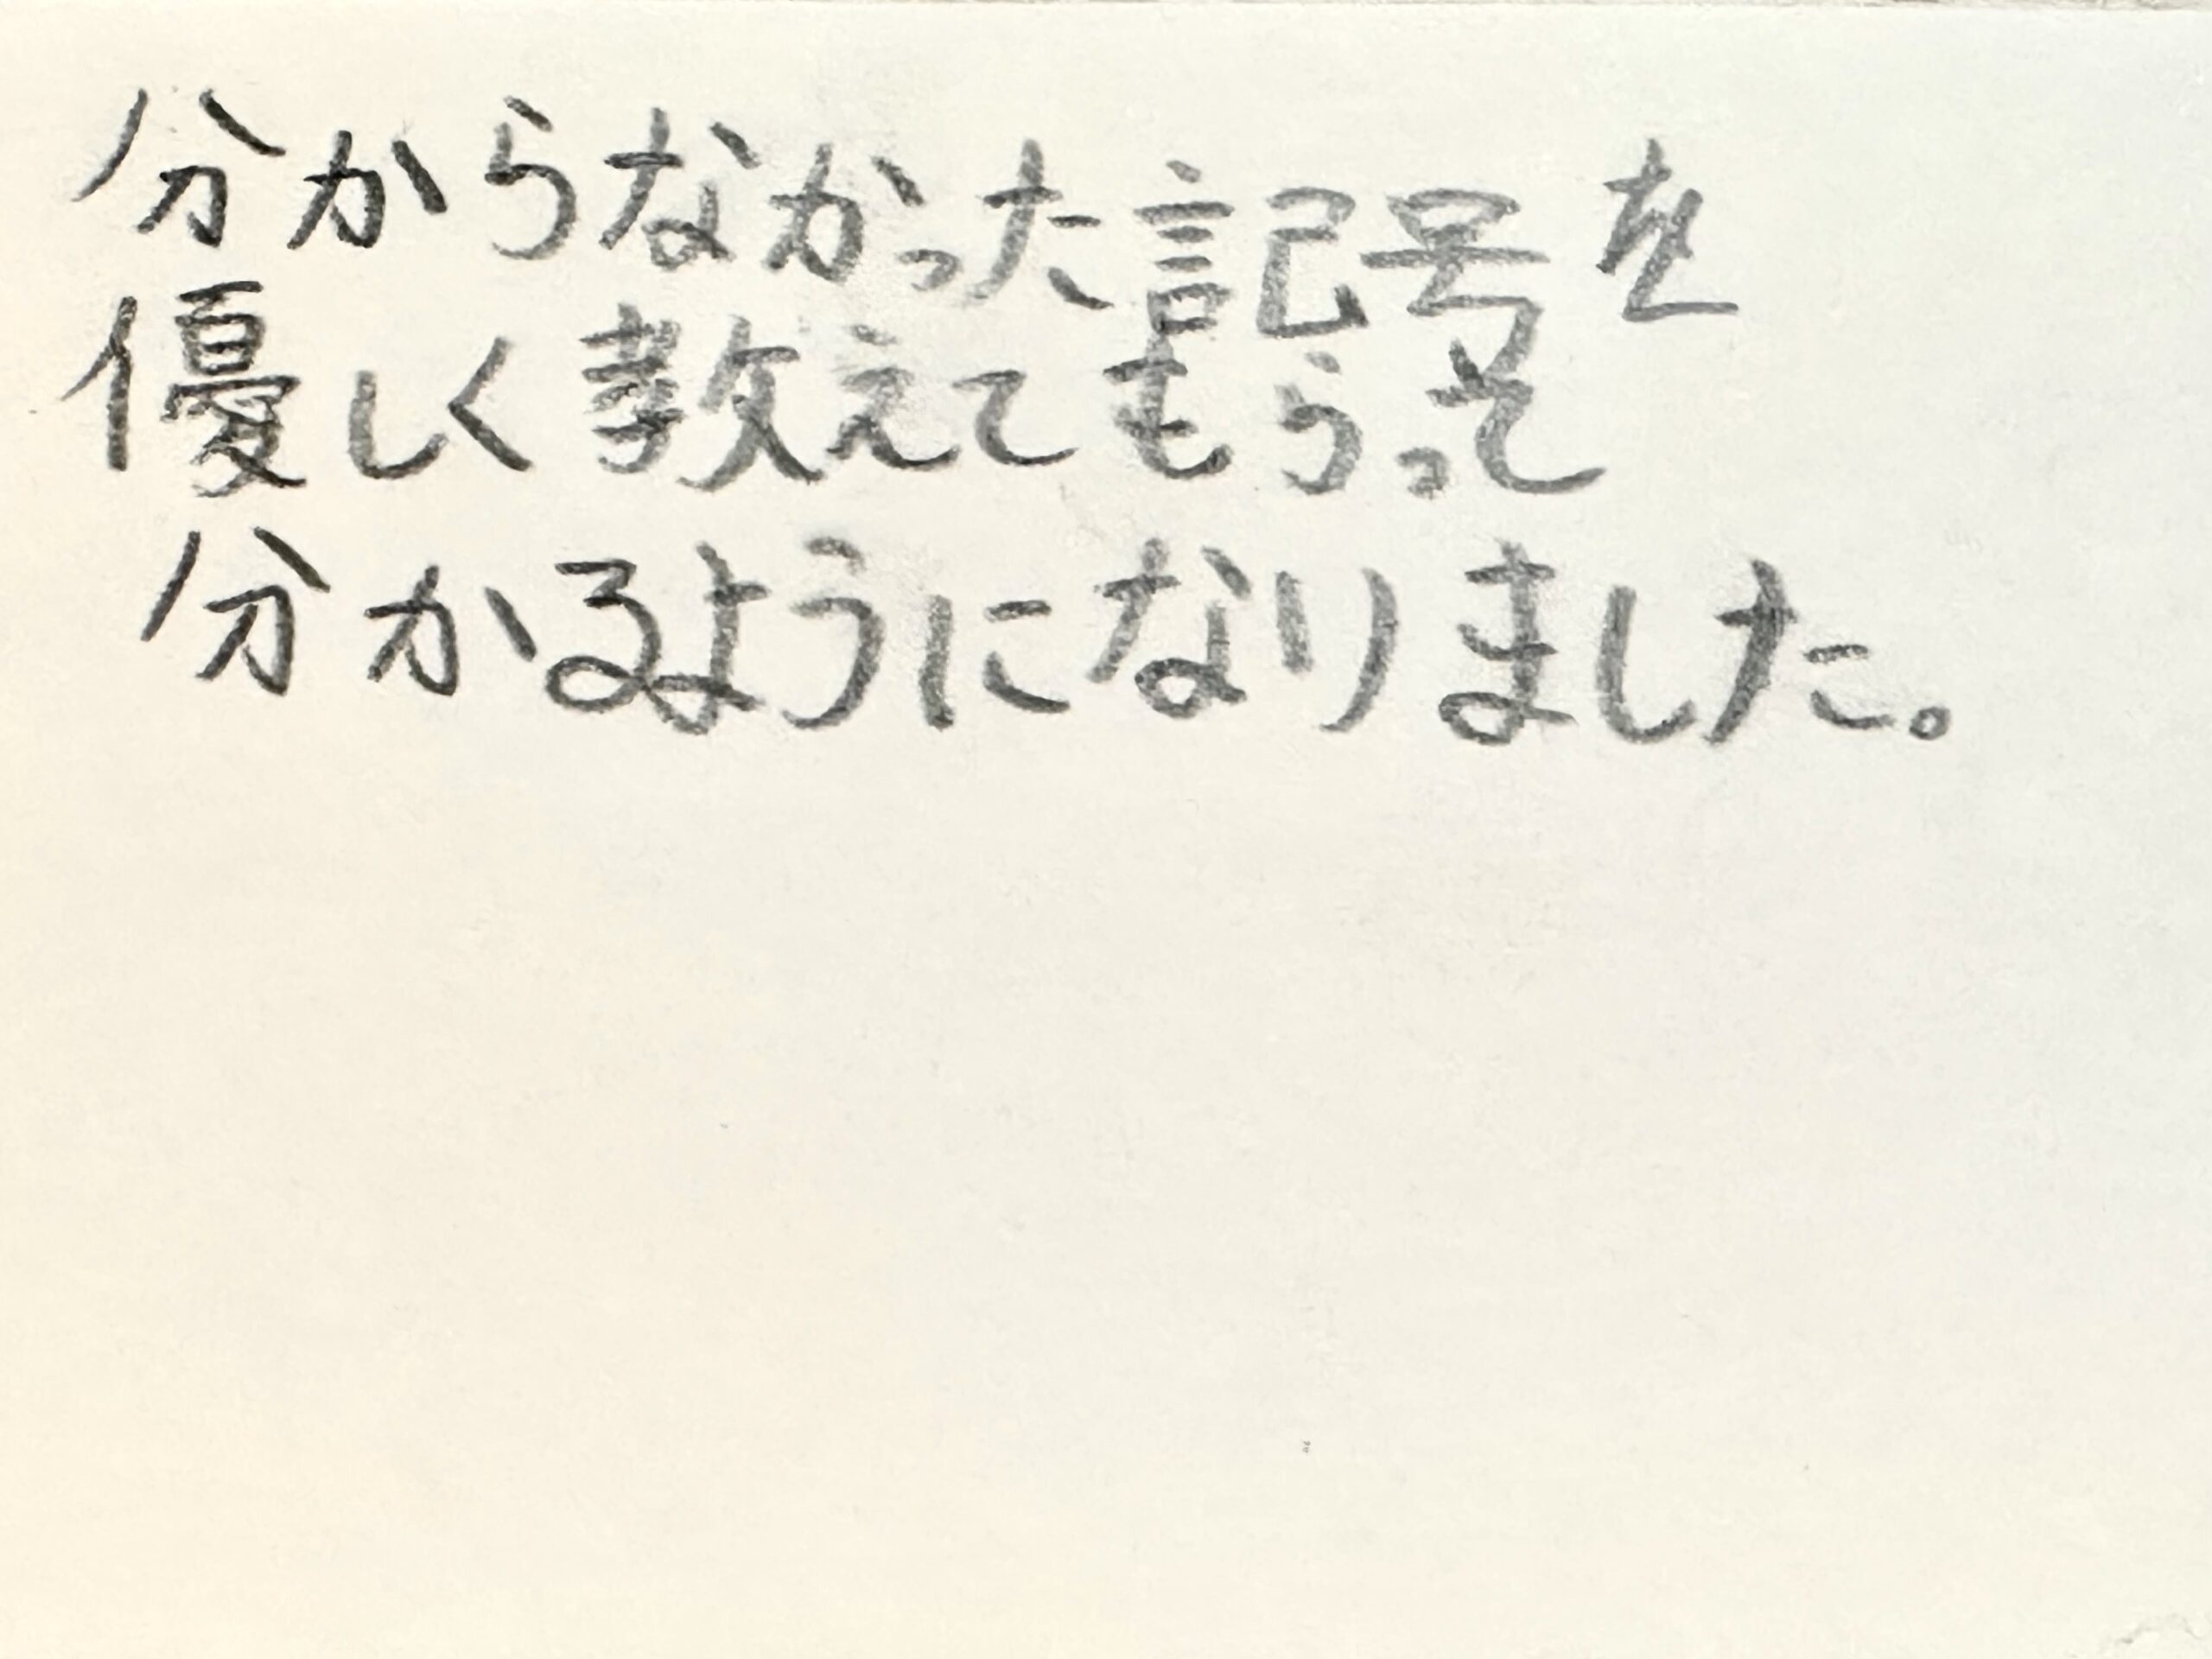 分からなかった記号を
優しく教えてもらって
分かるようになりました。